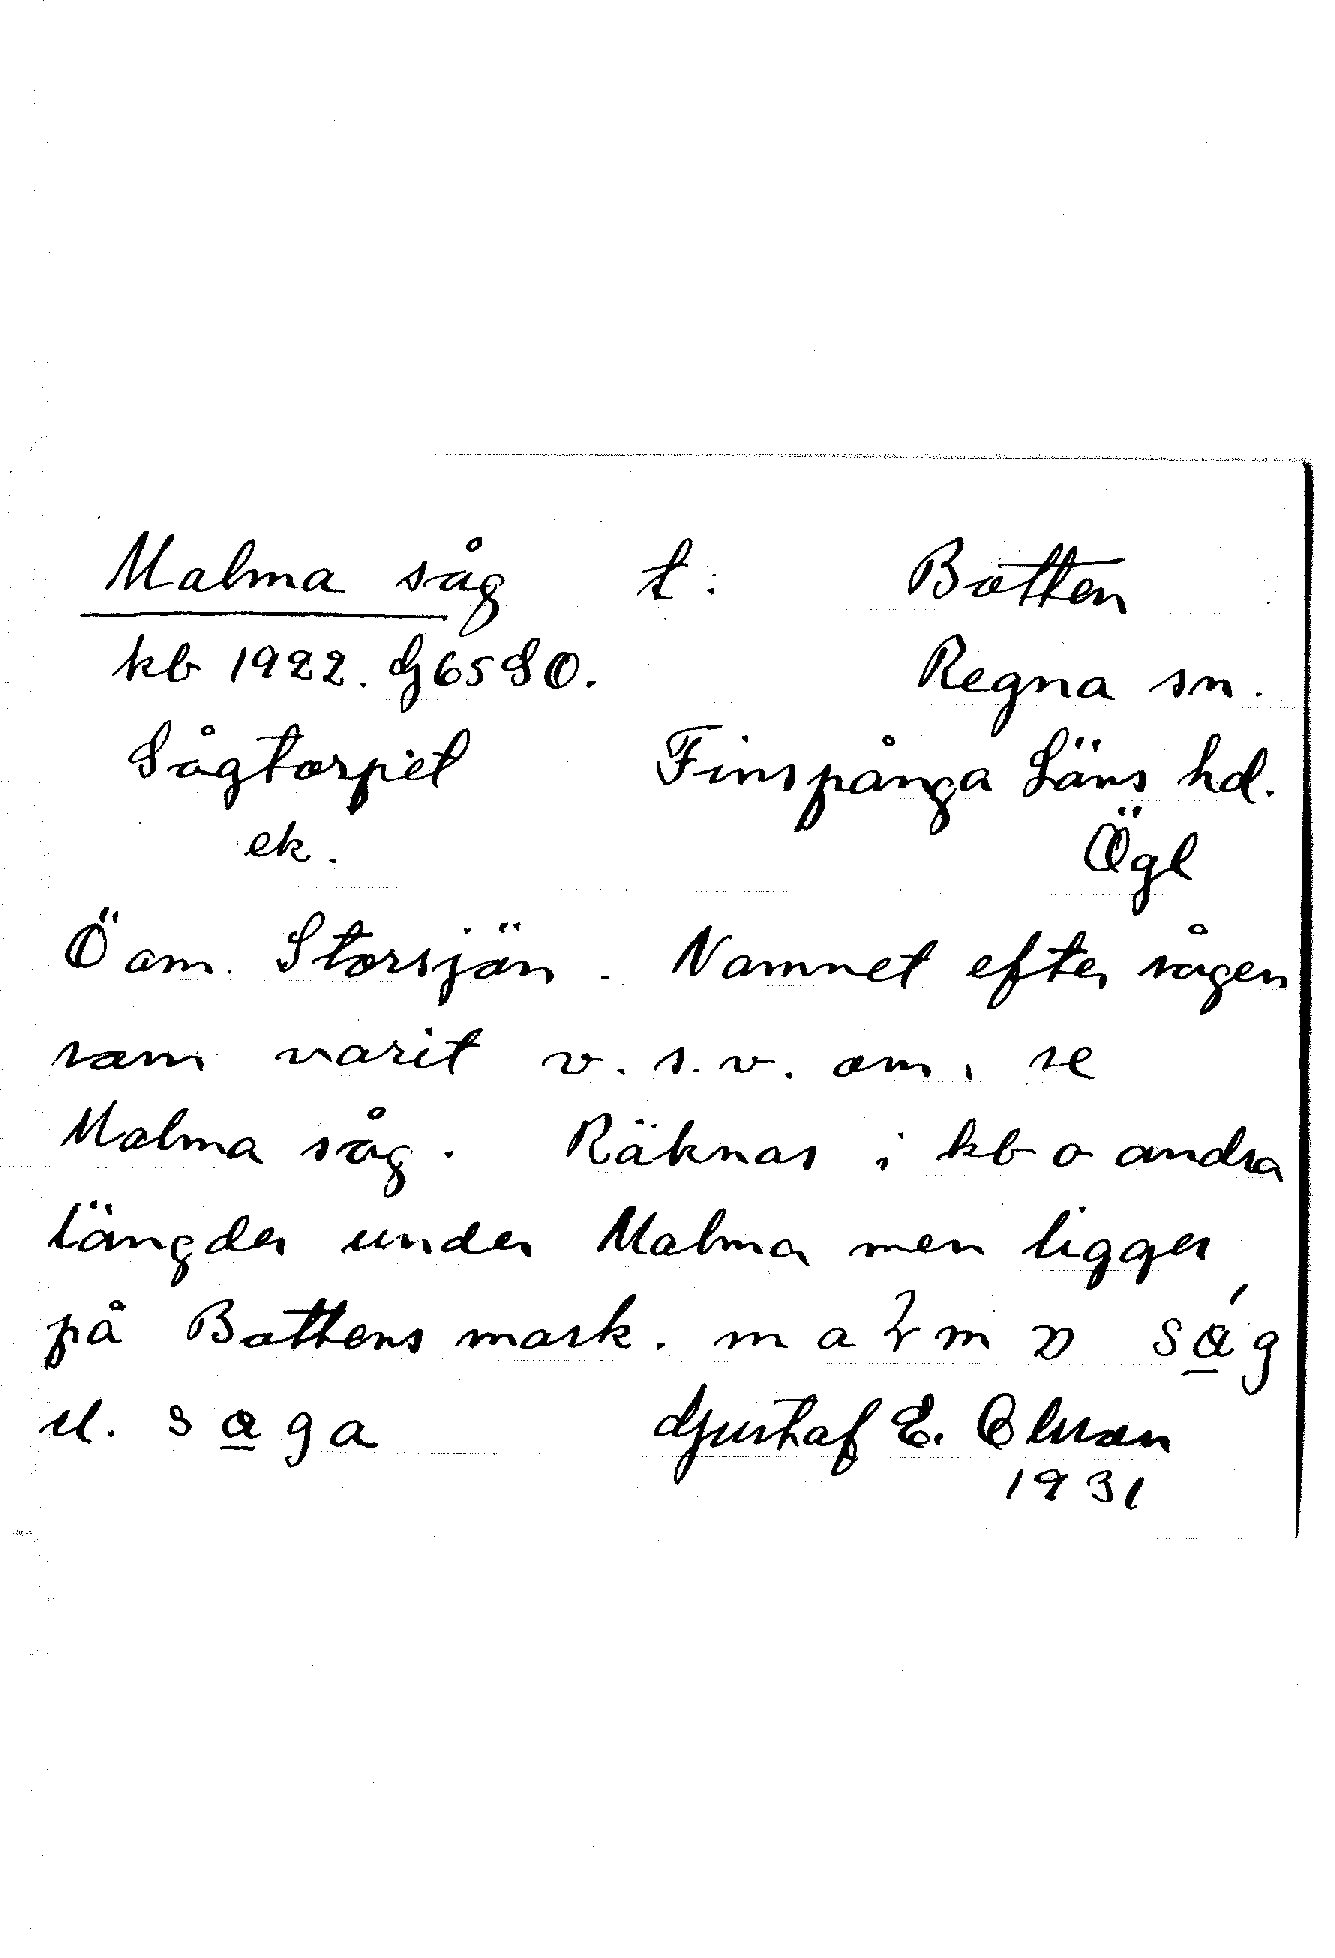 Malma såg t. Botten
kb 1922. G65SO. Regna sn.
Sågtorpet Finspånga Läns hd.
ek. Ögl
Ö om. Storsjön. Namnet efter sågen
som varit v.s.v. om, se
Malma såg. Räknas i kb o andra
längder under Malma men ligger
på Bottens mark. m a m såg
el. saga Gustaf E.
1931